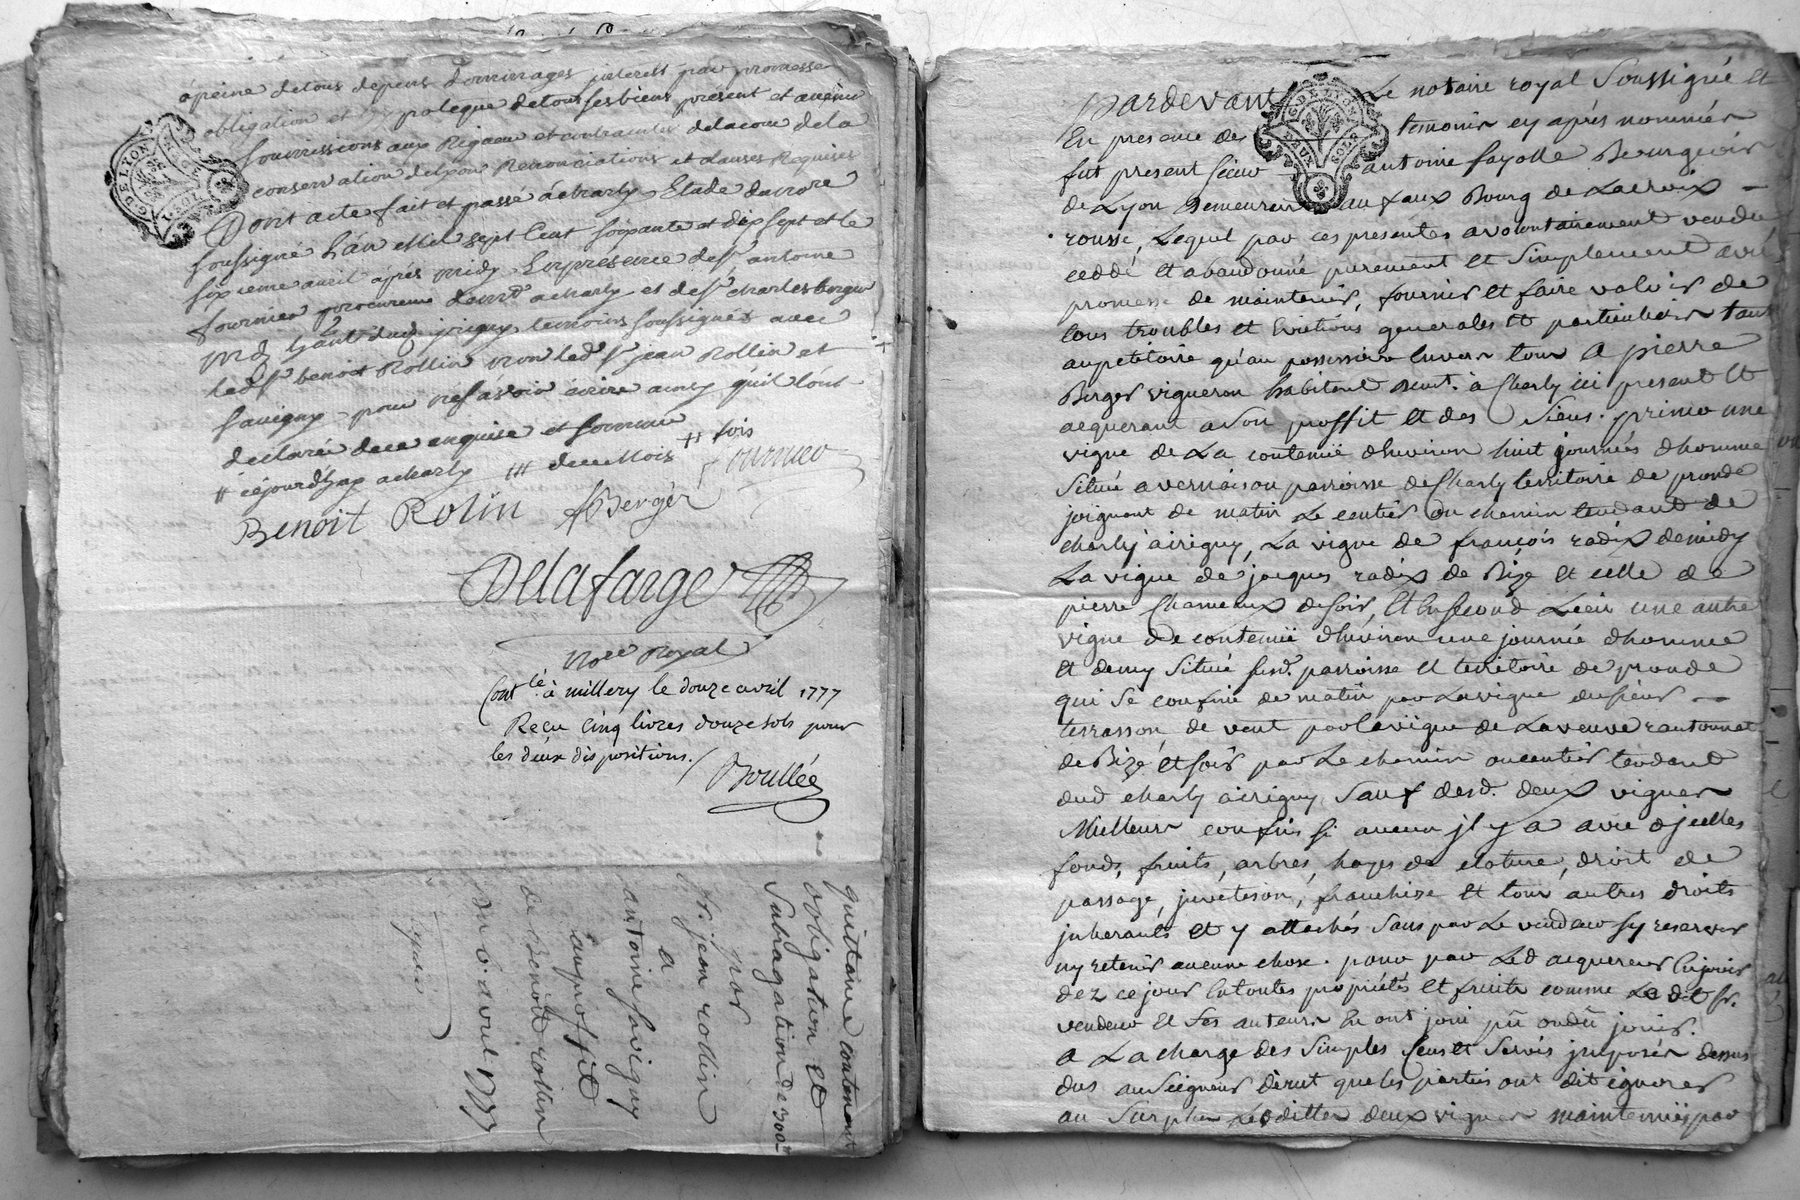 à peine de tous depens dommages interests par promesse
obligation et hypoteque de tous ses biens present et avenir
soumissions aux Rigueur et contraintes de la cour de la
conservation de Lyon Renonciations et clauses Requises
Dont acte fait et passé à charly Etude du nore
soussigné L'an mil sept Cent soixante et dix sept et le
sixieme avril après midy En presence de sr antoine
fournier procureur demt a charly et de sr charles berger
md
led sr benoit Rollin non led sr jean Rollin et
Savigny pour ne savoir écrire ainsy qu'il l'ont
declaré de ce enquis et sommé
fois
Benoit Rolin Berger fournier
Delafarge
nore Royal
Contlé à millery le douze avril 1777
Reçu Cinq livres douze sols pour
les deux dispositions.
Boullée
quittance contenant
obligation et
Subrogation de 300
par
Sr. jean rollin
a
antoine Savigny
au proffit
de Benoit rollin
Du 6. avril 1777
G DE LYON
G DE LYON
DEUX SOLS
Pardevant Le notaire royal Soussigné et
En presence de temoins cy aprés nommés
fut present sieur antoine fayolle Bourgeois
de Lyon Demeurent au faux Bourg de Lacroix
rousse, Lequel par ces presentes avolontairement vendu
ceddé et abandonné purement et Simplement avec
promesse de maintenir, fournir et faire valoir de
tous troubles et Evictions generales et particuliers tant
aupetitoire qu'au possessoire Envers tous A pierre
Berger vigneron habitant demt. à Charly ici present et
acquerant a son proffit et des Siens. primo une
vigne de La contenuë d'huviron huit journées d'homme
Situé a vernaison parroisse de Charly territoire de pronde
joignant de matin Le sentier ou chemin tendant de
charly a irigny, La vigne de françois radix de midy
La vigne de jacques radix de Bize et celle de
pierre Chameaux de soir, Et En second Lieu une autre
vigne De contenuë d'huviron une journée d'homme
et demy Situé susd. parroisse et territoire de pronde
qui se confine de matin par La vigne du sieur
terrasson, de vent par la vigne de La veuve
de Bize, et soir par Le chemin ou sentier tendant
dud charly a irigny, Sauf desd. deux vignes
Meilleurs confins si aucun jl y a avec djcelles
fonds, fruits, arbres, hayes de cloture, droit de
passage, franchise et tous autres droits
jnherants et y attachés sans par Le vendeur sy reserver
ny retenir aucune chose. pour par Led acquereur En jouir
dez ce jour En toutes propriétés et fruits comme Le dit sr.
vendeur et ses auteurs En ont joui pû ou dû jouir.
A La charge des Simples Cens et Servis jmposés dessus
dus au Seigneur direct que les parties ont dit ignorer
au Surplus Lesdittes deux vignes maintenuës par